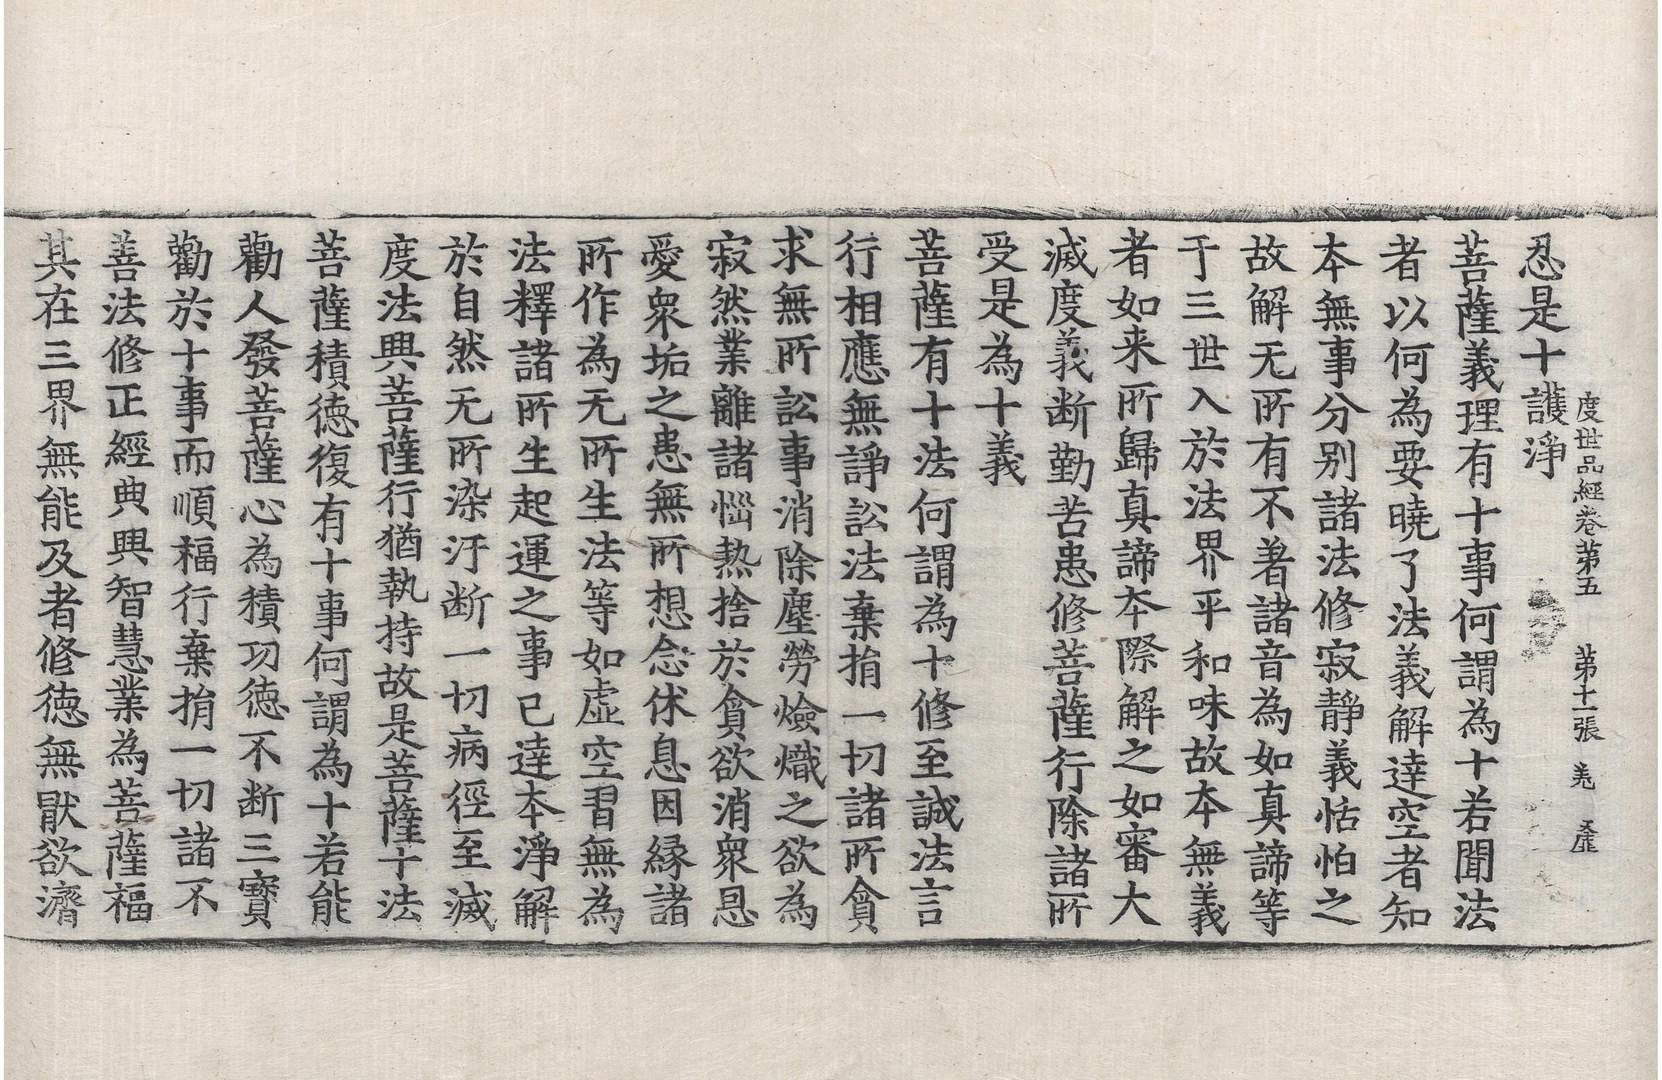 度世品經卷第五　第十一張　虛
忍是十護淨
菩薩義理有十事何謂為十若聞法
者以何為要曉了法義解達空者知
本無事分別諸法修寂靜義怙怕之
故解无所有不著諸音為如真諦等
于三世入於法界平和味故本無義
者如来所歸真諦本際解之如審大
滅度義断勤苦患修菩薩行除諸所
受是為十義
菩薩有十法何謂為十修至誠法言
行相應無諍訟法棄捐一切諸所貪
求無所訟事消除塵勞熾之欲為
寂然業離諸惱熱捨於貪欲消衆恩
愛衆垢之患無所想念休息因縁諸
所作為无所生法等如虛空習無為
法釋諸所生起運之事已達本淨解
於自然无所染汙断一切病徑至滅
度法興菩薩行猶執持故是菩薩十法
菩薩積德復有十事何謂為十若能
勸人發菩薩心為積功德不断三寶
勸於十事而順福行棄捐一切諸不
善法修正經典興智慧業為菩薩福
其在三界無能及者修德無猒欲濟